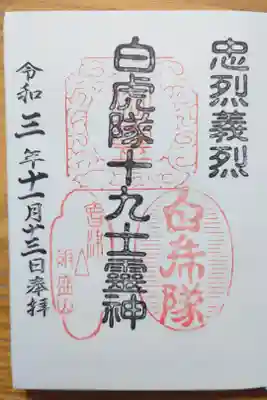 忠烈義烈
白虎隊十九士靈神
令和三年十一月廿三日奉拝
白虎隊
會津
飯盛山